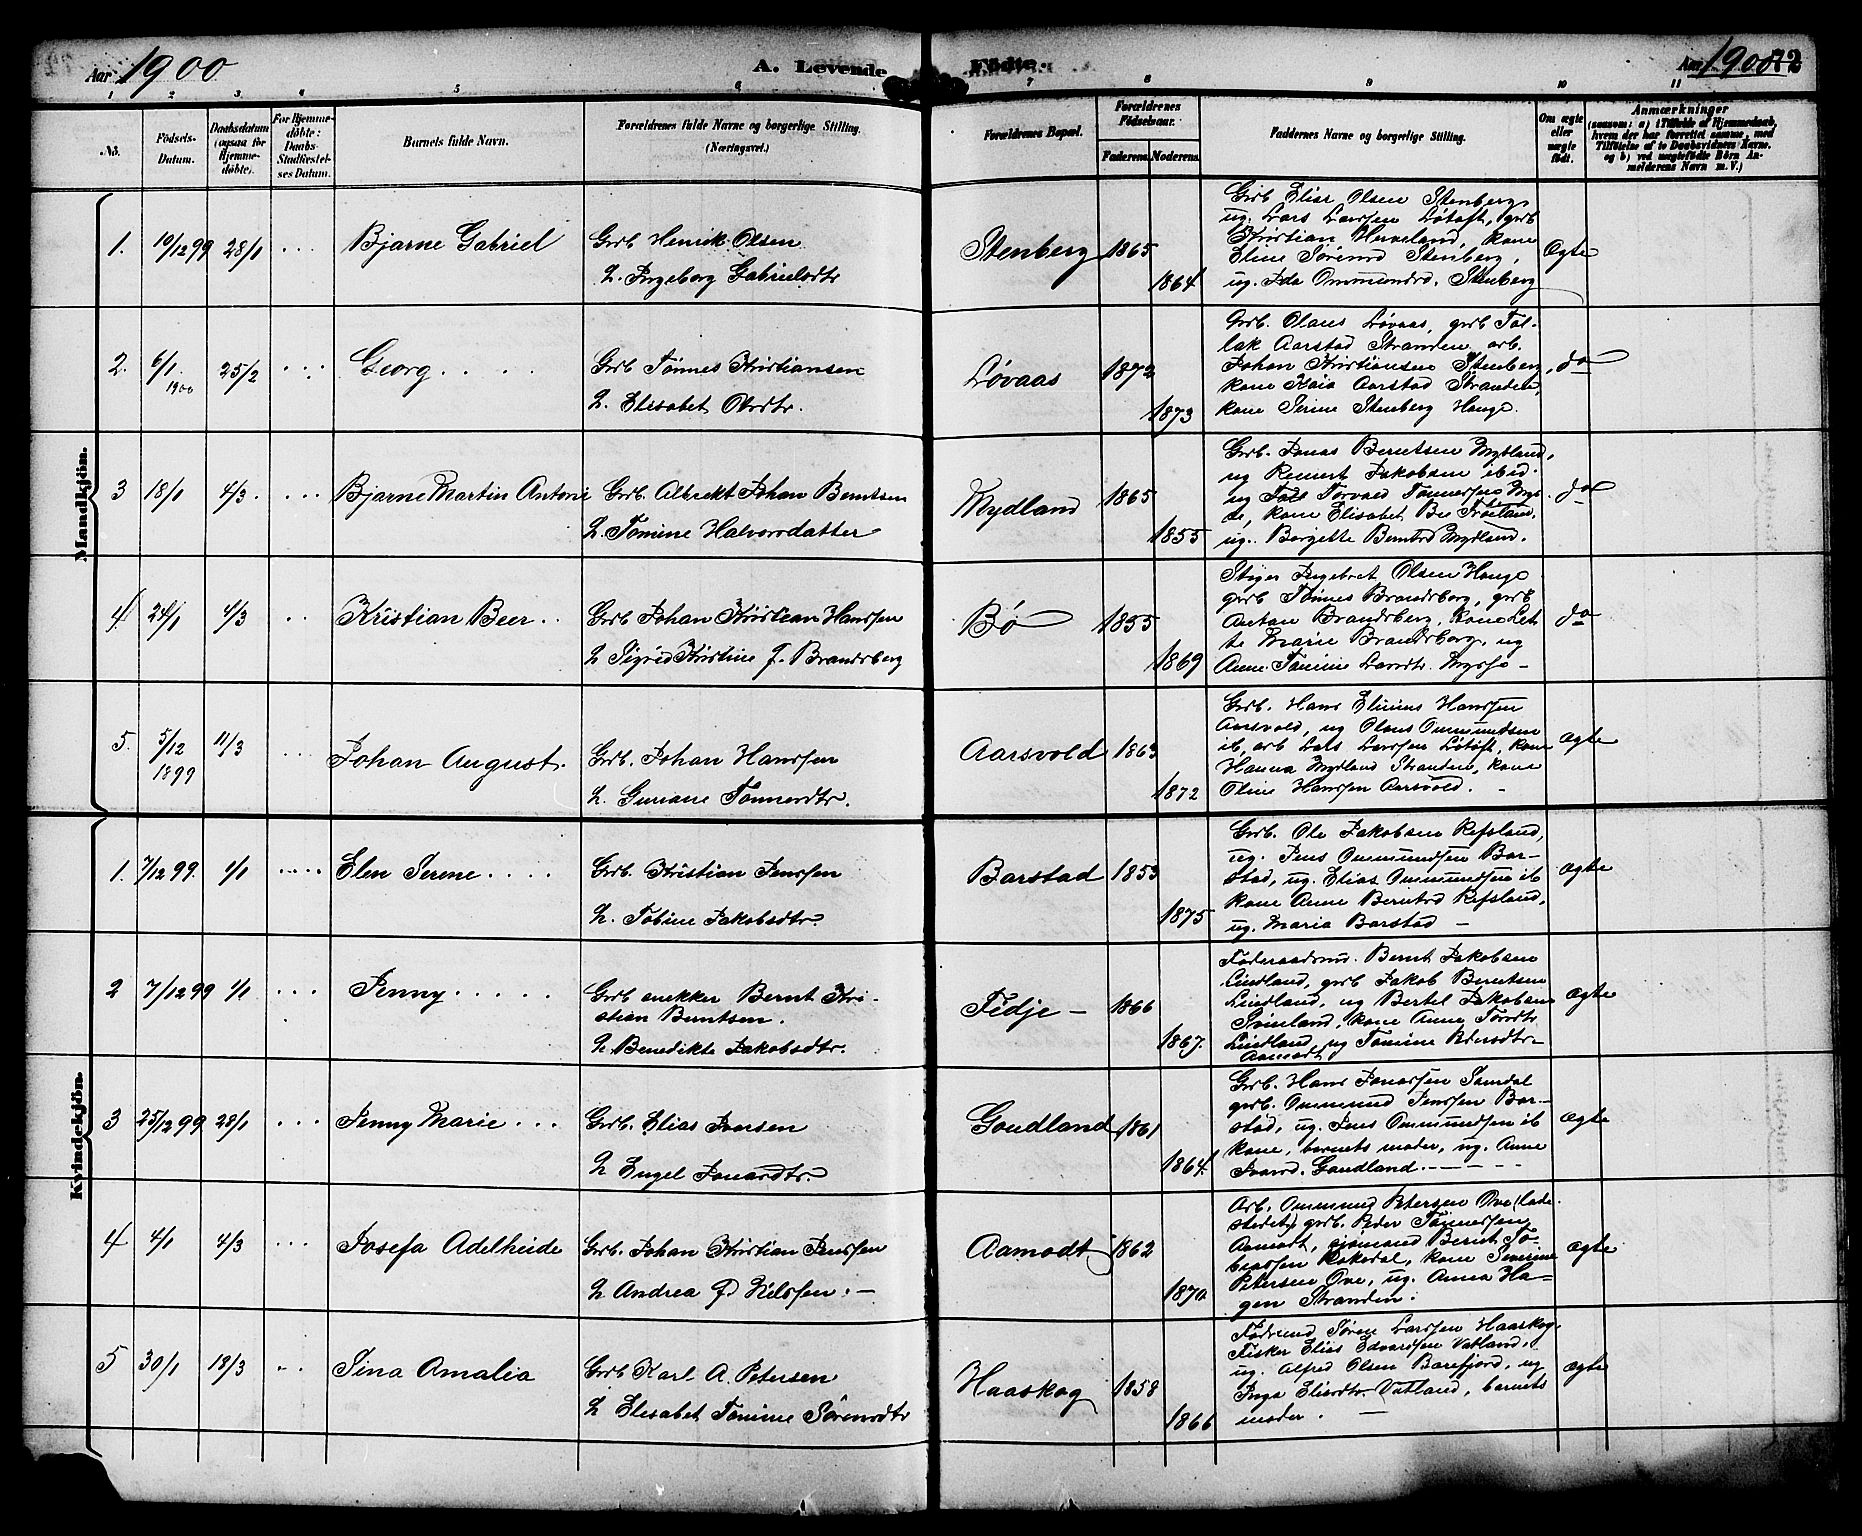 Aar 1900
A. Levende Födte.
Aar 1900
72
1 2 3 4 5 6 7 8 9 10 11
No.
Födsels-Datum.
Daabsdatum (ogsaa for Hjemmedöbte).
For Hjemmedöbte: Daabs Stadfæstelses Datum.
Barnets fulde Navn.
Forældrenes fulde Navne og borgerlige Stilling. (Næringsvei.)
Forældrenes Bopæl.
Forældrenes Födselsaar.
Faderens. Moderens.
Faddernes Navne og borgerlige Stilling.
Om ægte eller uægte födt.
Anmærkninger
(saasom: a) i Tilfælde af Hjemmedaab, hvem der har forrettet samme, med Tilföielse af to Daabsvidners Navne. og b) ved uægtefödte Börn Anmelderens Navn m. V.)
Mandkjön.
1. 10/12 99 28/1 ... Bjarne Gabriel
Grb Henrik Olsen
H. Ingeborg Gabrielsdtr
Stenberg 1865
1864
Grb Elias Olsen Stenberg,
ug. Lars Larssen Løtoft, grb
Kristian Huveland, kone
Eline Sørensd Stenberg,
ug. Ida Ommundsd. Stenberg
Ægte
2. 6/1 1900 25/2 ... Georg . . . .
Grb Tønnes Kristiansen
H. Elisabet Olsdtr.
Løvaas 1872
1873
Grb. Olaus Løvaas, grb Tol-
lak Aarstad Stranden, arb.
Johan Kristiansen Stenberg,
kone Kaia Aarstad Stranden,
kone Serine Stenberg Hauge.
do
3 18/1 4/3 ... Bjarne Martin Antoni
Grb. Albrekt Johan Berntsen
H. Tomine Halvorsdatter
Mydland 1865
1855
Grb. Jonas Berntsen Mydland,
ug Reinert Jakobsen ibid.
ug Torvald Tønnessen
kone Elisabet Frøiland,
ug. Borgitte Berntsd Mydland.
do
4 24/1 4/3 .. Kristian Beer ..
Grb Johan Kristian Hanssen
H Sigrid Kristine f. Brandsberg
Bø 1855
1869
Stiger Ingebret Olsen Hauge
grb Tønnes Brandsberg, grb
Anton Brandsberg, kone Let-
te Marie Brandsberg, ug
Anne Tomine Larsdtr. Myssø -
do
5. 5/12 1899 11/3 ... Johan August.
Grb. Johan Hanssen
H. Guriane Tønnesdtr.
Aarsvold 1863
1872
Grb. Hans Elinius Hanssen
Aarsvold, ug Olaus Ommundsen
ib, arb Lars Larssen Løtoft, kone
Hanna Mydland Stranden, kone
Oline Hanssen Aarsvold.
ægte
Kvindekjön.
1. 7/12 99. 1/1 ..... Elen Serine ....
Grb. Kristian Jenssen
H. Tobine Jakobsdtr.
Barstad 1853
1875
Grb. Ole Jakobsen Refsland,
ug. Jens Ommundsen Bar-
stad, ug. Elias Ommundsen ib
kone Anne Berntsd Refsland,
ug. Maria Barstad -
ægte
2 7/12 99 1/1 ... Jenny.....
Grb snekker Bernt Kri-
stian Berntsen.
H. Benedikte Jakobsdtr.
Fidje - 1866
1867.
Føderaadsmd. Bernt Jakobsen
Lindland, grb Jakob Berntsen
Lindland, ug Bertel Jakobsen
Svineland, kone Anne Torsdtr
Lindland, ug Tomine Pedersdtr
Aamodt
ægte
3 25/12 99 28/1 ... Jenny Marie ...
Grb. Elias Iversen
H Engel Jonasdtr.
Goudland 1861
1864.
Grb. Hans Jonassen Samdal
grb. Ommund Jenssen Bar-
stad, ug. Jens Ommundsen ib
kone, barnets moder, ug. Anne
Ivarsd. Goudland.
ægte
4 4/1 4/3 ... Josefa Adelheide
Grb. Johan Kristian Jenssen
H Andrea f. Nilssen. -
Aamodt 1862
1870
Arb. Ommund Petersen Ove (lade-
stedet) grb. Peder Tønnessen
Aamodt, sjømand Bernt To-
biassen Rakedal, kone Severine
Petersen Ove, ug. Anna Ha-
gen Stranden.
ægte
5 30/1 18/3 .. Sina Amalia
Grb Karl A. Petersen
H Elisabet Tomine Sørensdtr
Haaskog 1858
1866
Fødrmd Søren Larssen Haaskog,
Fisker Elias Edvardsen Vatland,
ug. Alfred Olsen Barefjord, ug
Inga Eliasdtr Vatland, barnets
moder. -
ægte